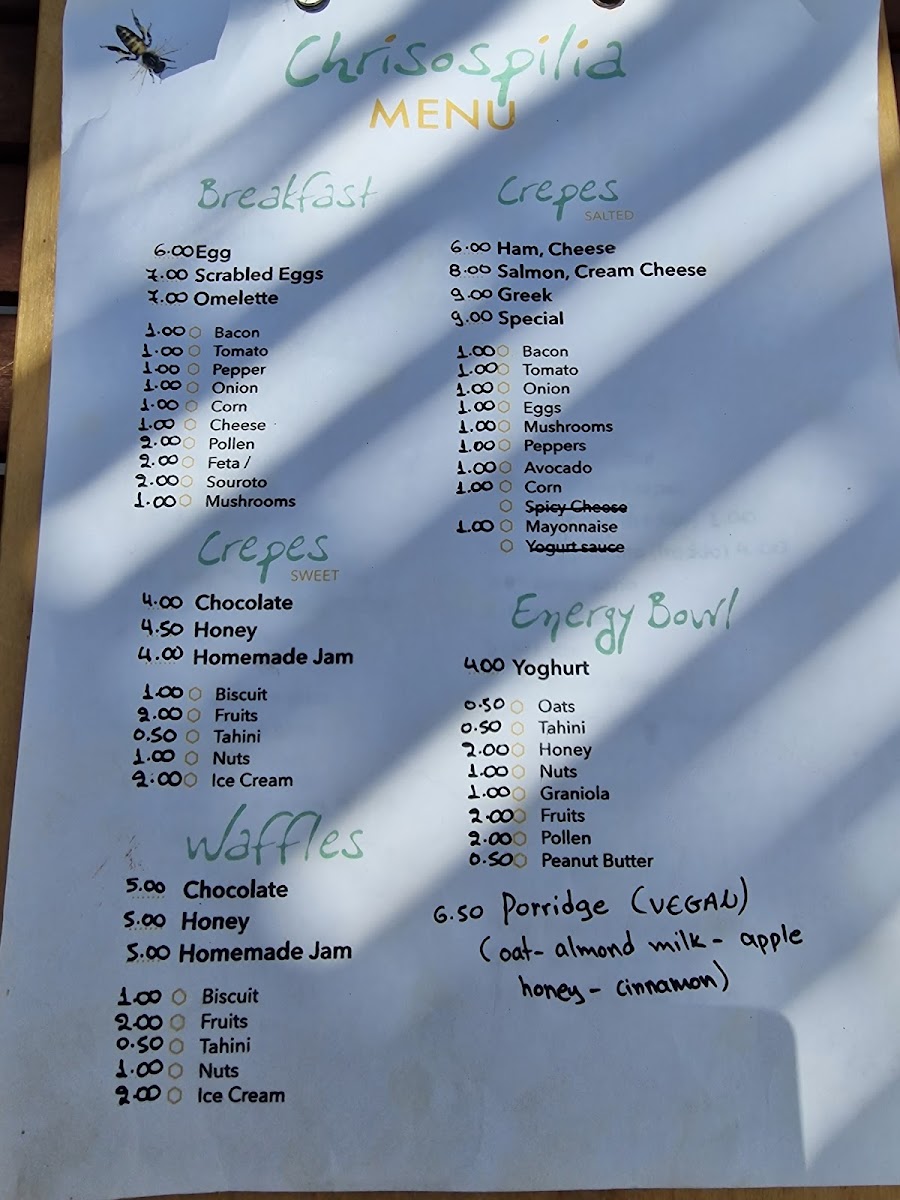 Chrisospilia
MENU
Breakfast
6.00 Egg
7.00 Scrabled Eggs
7.00 Omelette
1.00 Bacon
1.00 Tomato
1.00 Pepper
1.00 Onion
1.00 Corn
1.00 Cheese
2.00 Pollen
2.00 Feta /
2.00 Souroto
1.00 Mushrooms
Crepes
SWEET
4.00 Chocolate
4.50 Honey
4.00 Homemade Jam
1.00 Biscuit
2.00 Fruits
0.50 Tahini
1.00 Nuts
2.00 Ice Cream
Waffles
5.00 Chocolate
5.00 Honey
5.00 Homemade Jam
1.00 Biscuit
2.00 Fruits
0.50 Tahini
1.00 Nuts
2.00 Ice Cream
Crepes
SALTED
6.00 Ham, Cheese
8.00 Salmon, Cream Cheese
9.00 Greek
9.00 Special
1.00 Bacon
1.00 Tomato
1.00 Onion
1.00 Eggs
1.00 Mushrooms
1.00 Peppers
1.00 Avocado
1.00 Corn
Spicy Cheese
1.00 Mayonnaise
Yogurt sauce
Energy Bowl
4.00 Yoghurt
0.50 Oats
0.50 Tahini
2.00 Honey
1.00 Nuts
1.00 Graniola
2.00 Fruits
2.00 Pollen
0.50 Peanut Butter
6.50 Porridge (VEGAN)
(oat- almond milk - apple
honey - cinnamon)